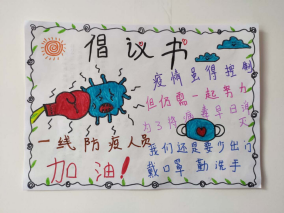 倡议书
疫情虽得控制
但仍需一起努力
为了疫病毒早日消灭
我们还是要少出门
戴口罩 勤洗手
一线防疫人员
加油！